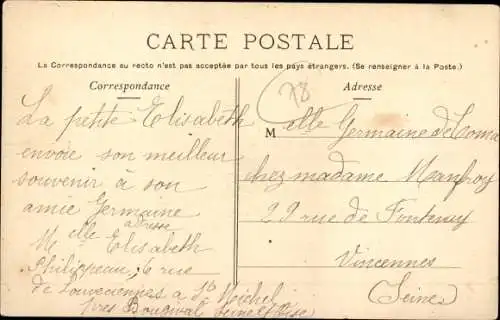 CARTE POSTALE
La Correspondance au recto n'est pas acceptée par tous les pays étrangers. (Se renseigner à la Poste.)
Correspondance
Adresse
78
La petite Elisabeth
envoie son meilleur
souvenir à son
amie Germaine
adresse
Mlle Elisabeth
Philippeau, 6 rue
de Louveciennes à St Michel
près Bougival Seine et Oise
Melle Germaine de
chez madame Manfroy
29 rue de Fontenay
Vincennes
(Seine)